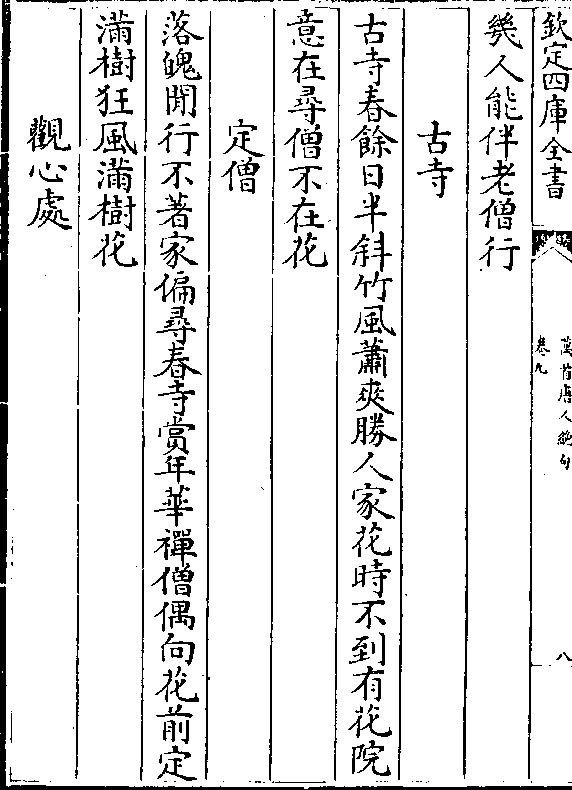 欽定四庫全書
萬首唐人絶句
卷九
八
幾人能伴老僧行
古寺
古寺春餘日半斜竹風蕭爽勝人家花時不到有花院
意在尋僧不在花
定僧
落魄閒行不著家偏尋春寺賞年華禪僧偶向花前定
滿樹狂風滿樹花
觀心處